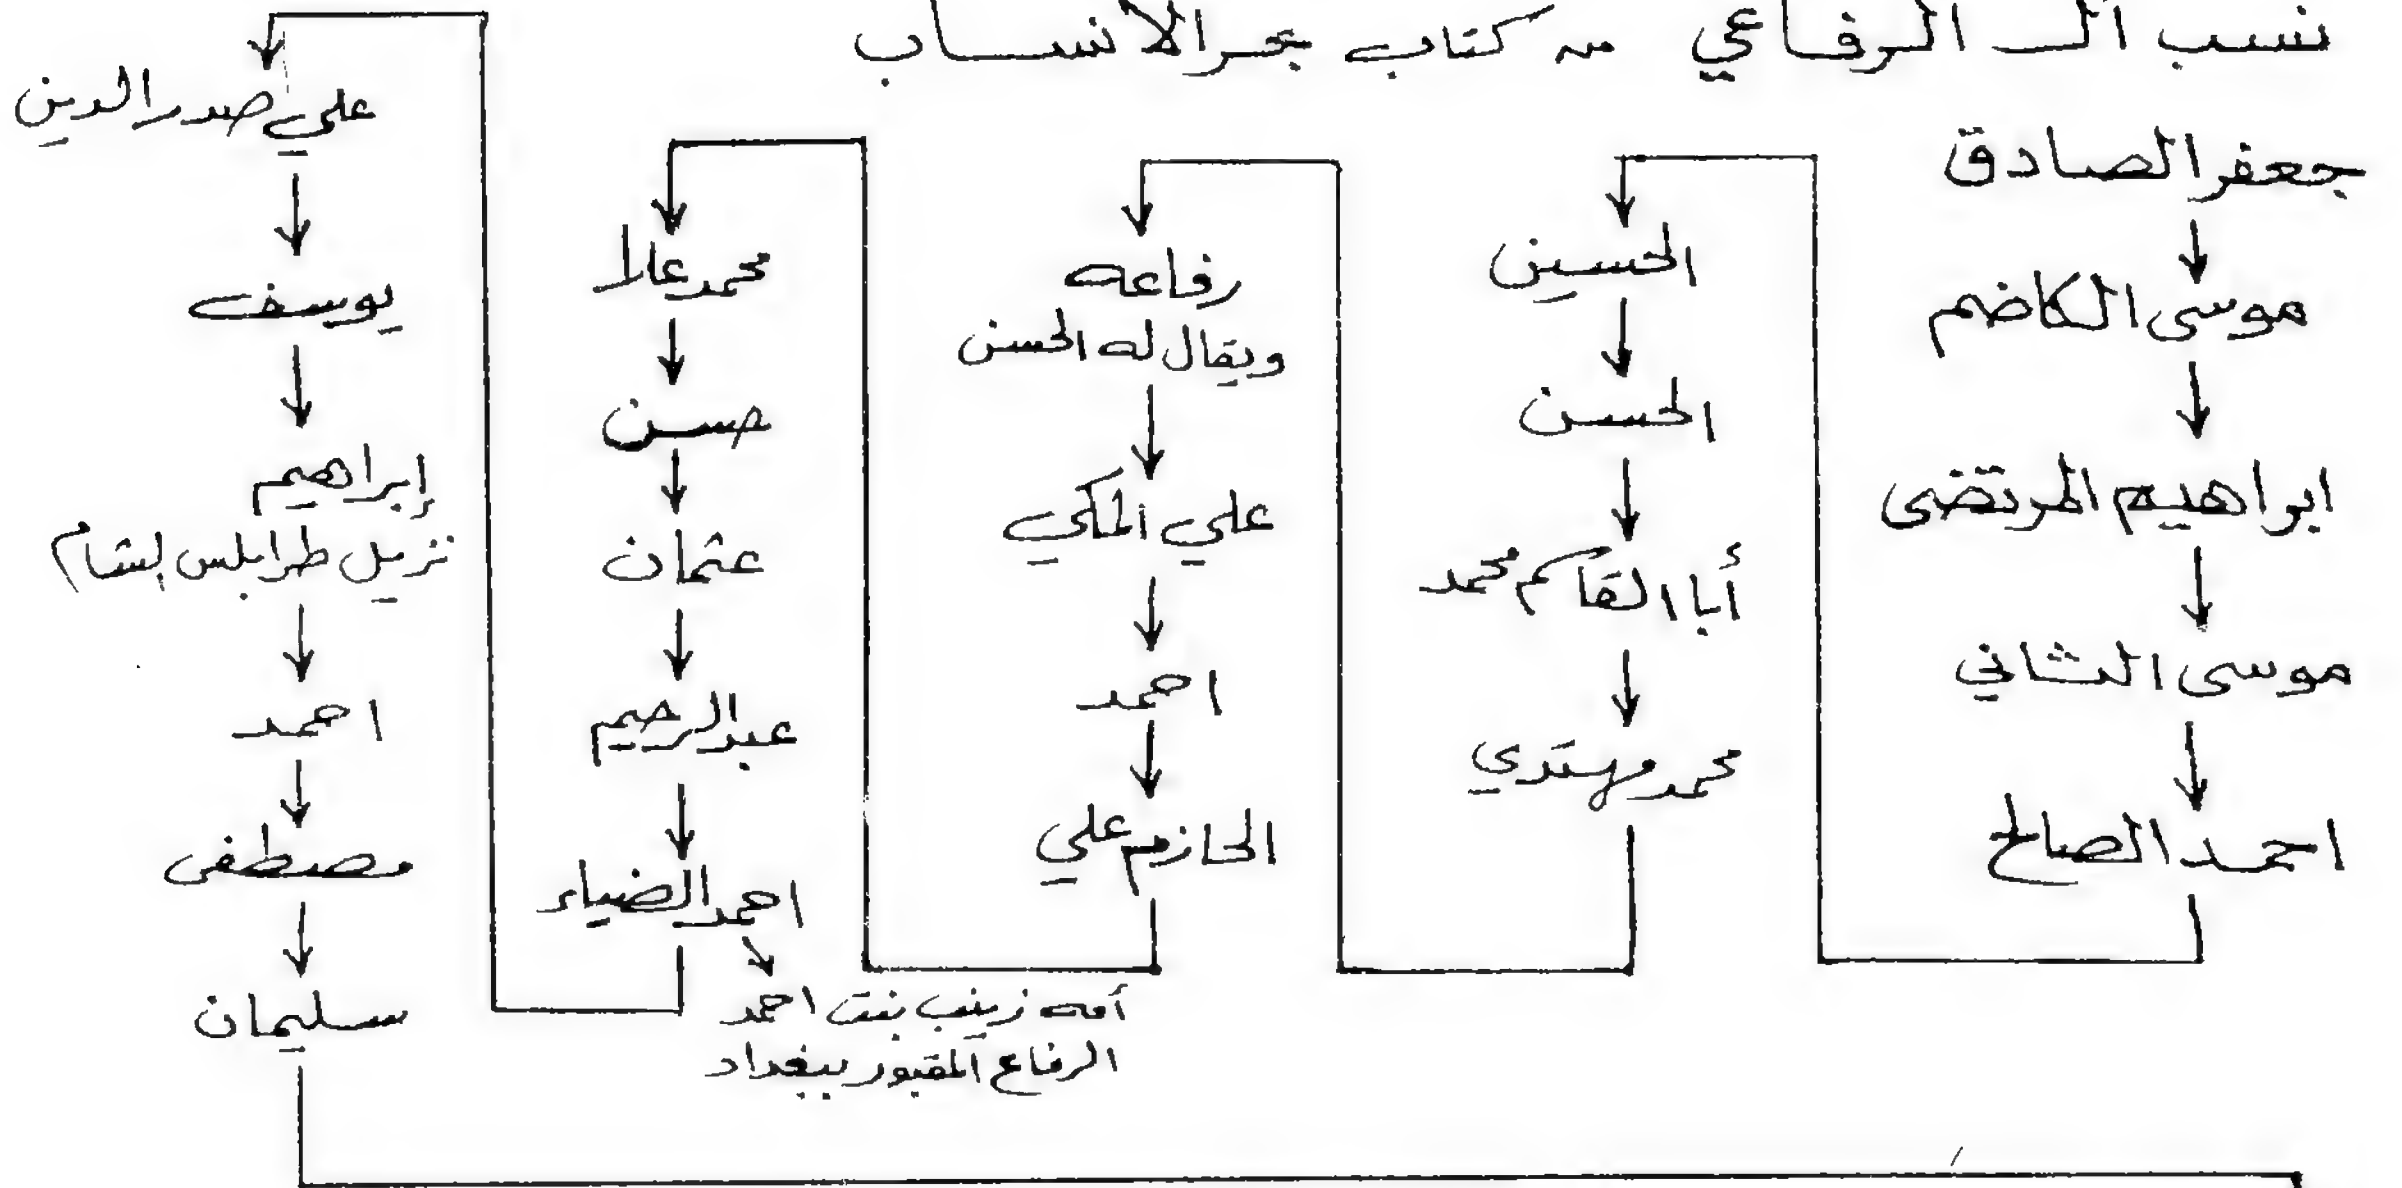 نسب آل الرفاعي من كتاب بحر الأنساب
جعفر الصادق
موسى الكاضم
ابراهيم المرتضى
موسى الثاني
احمد الصالح
الحسين
الحسن
أبا القاسم محمد
محمد مهتدي
رفاعه
ويقال له الحسن
علي المكي
احمد
الحازم علي
محمد عالا
حسن
عثمان
عبد الرحيم
احمد الضياء
أمه زينب بنت احمد
الرفاع المقبور ببغداد
علي صدر الدين
يوسف
إبراهيم
نزيل طرابلس لشام
احمد
مصطفى
سليمان